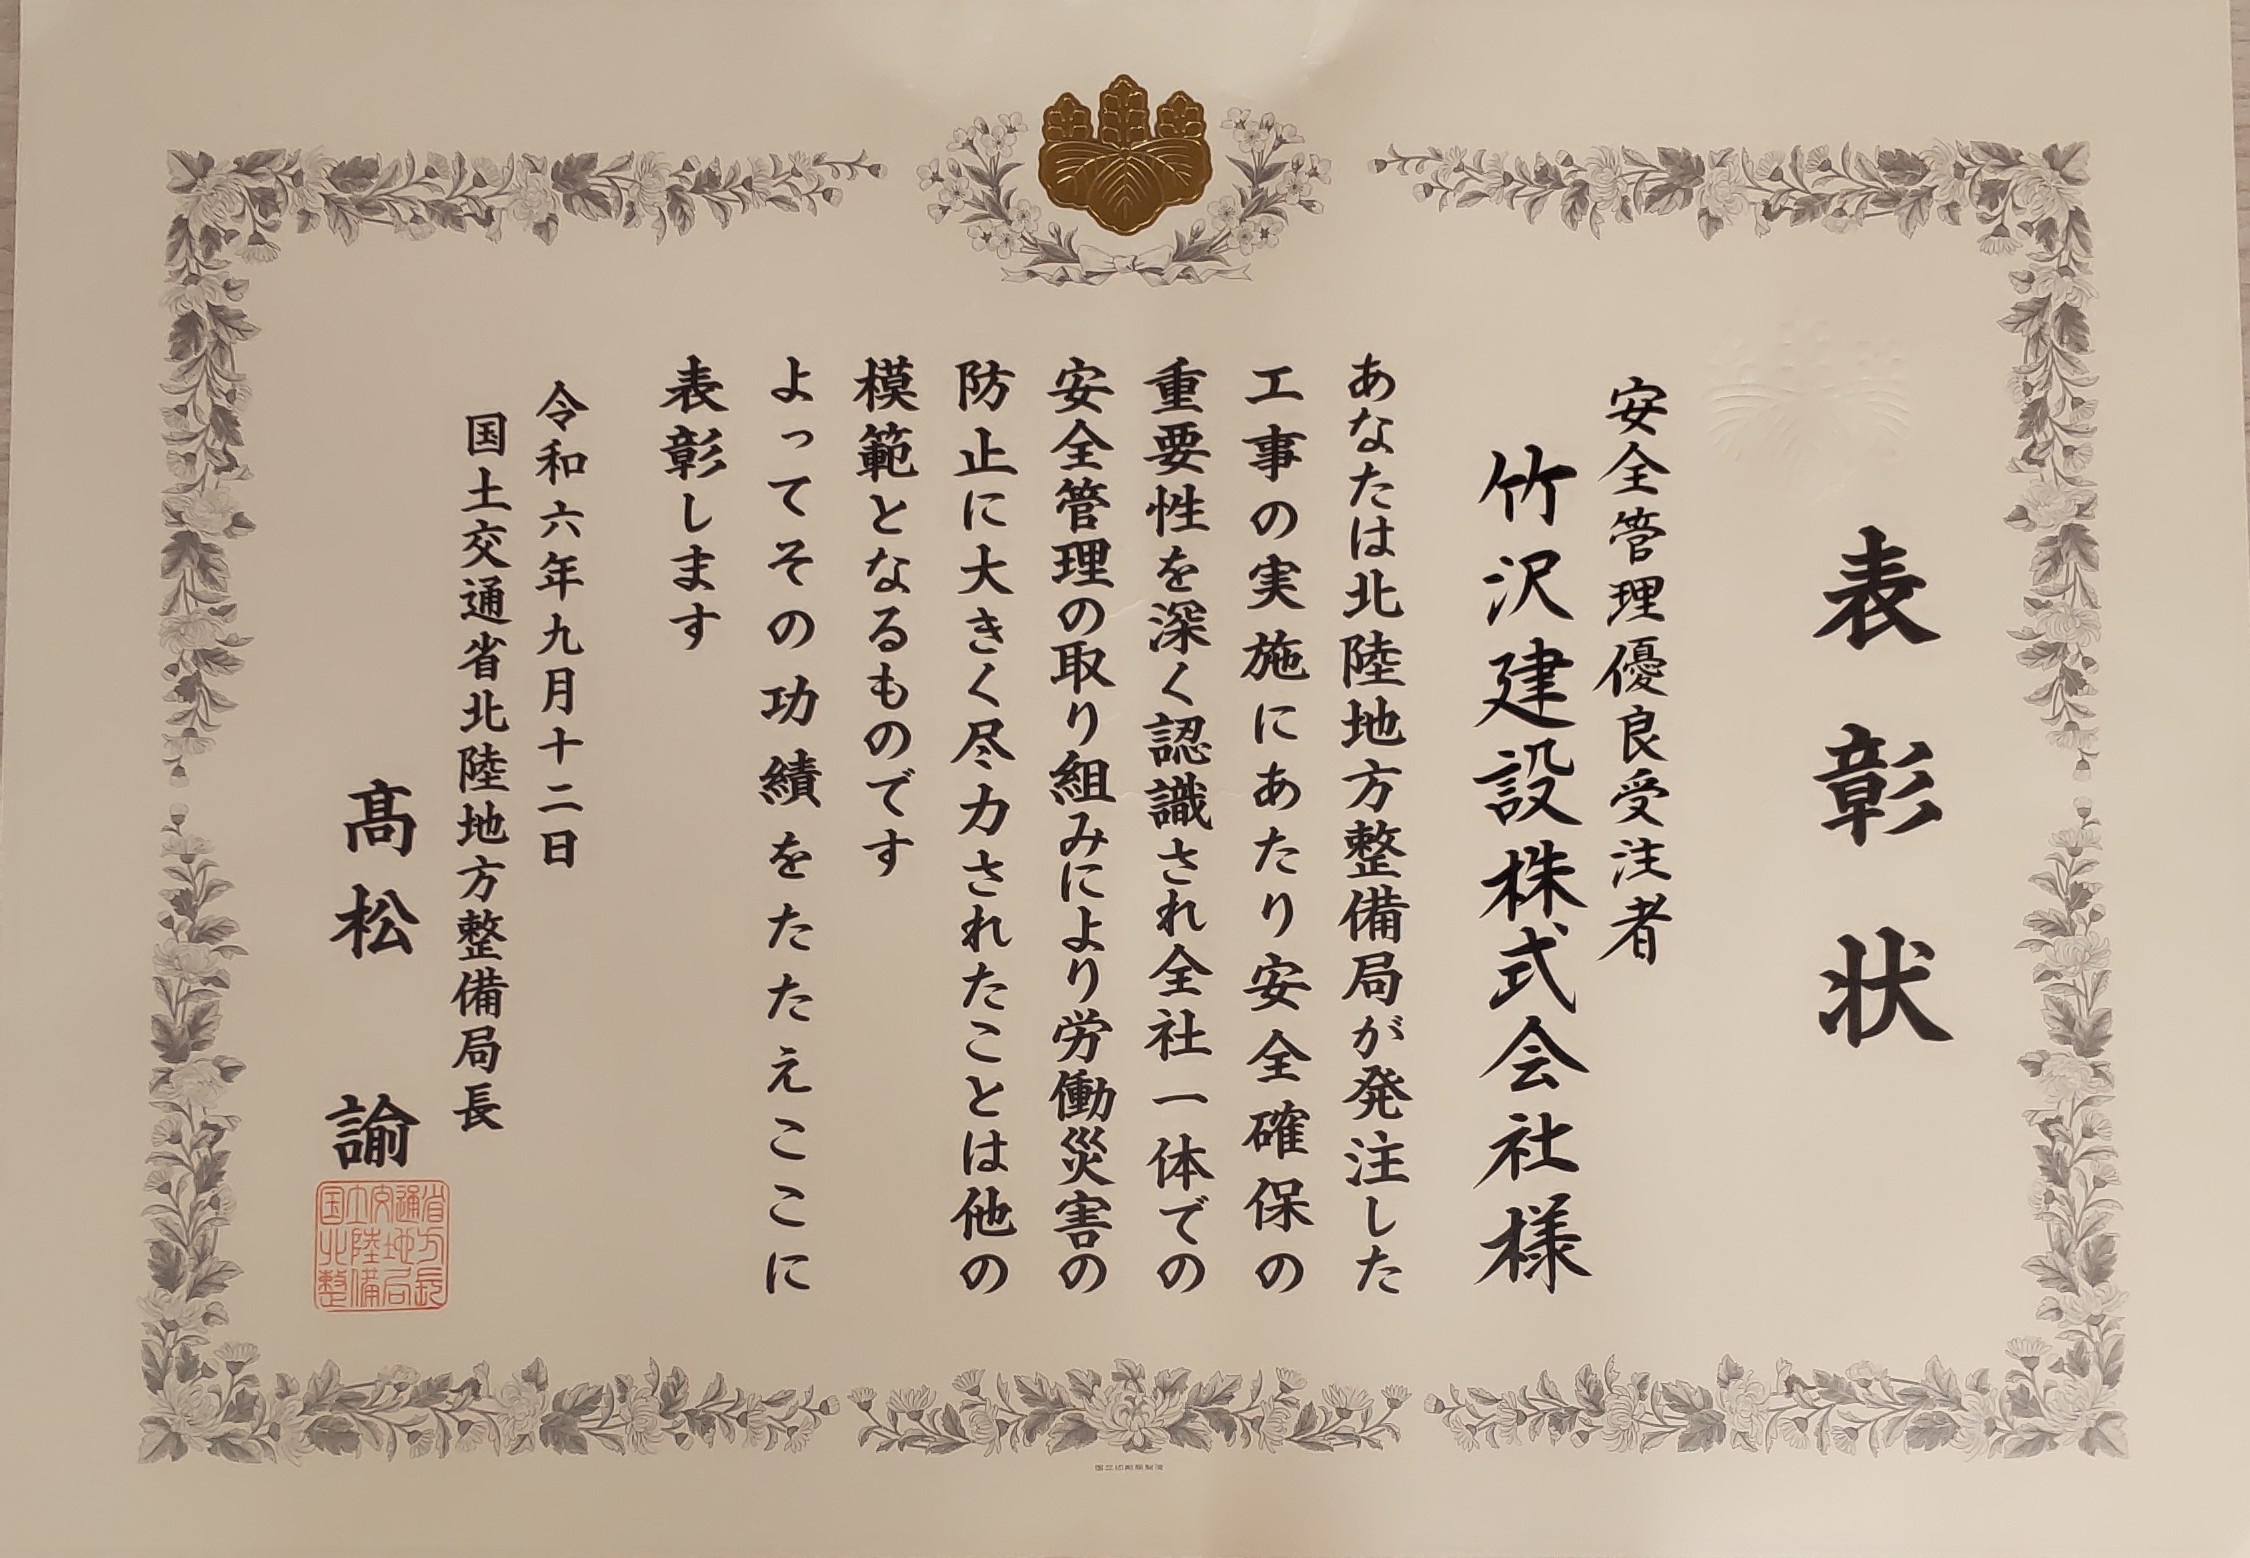 表彰状
安全管理優良受注者
竹沢建設株式会社様
あなたは北陸地方整備局が発注した
工事の実施にあたり安全確保の
重要性を深く認識され全社一体での
安全管理の取り組みにより労働災害の
防止に大きく尽力されたことは他の
模範となるものです
よってその功績をたたえここに
表彰します
令和六年九月十二日
国土交通省北陸地方整備局長
髙松 諭